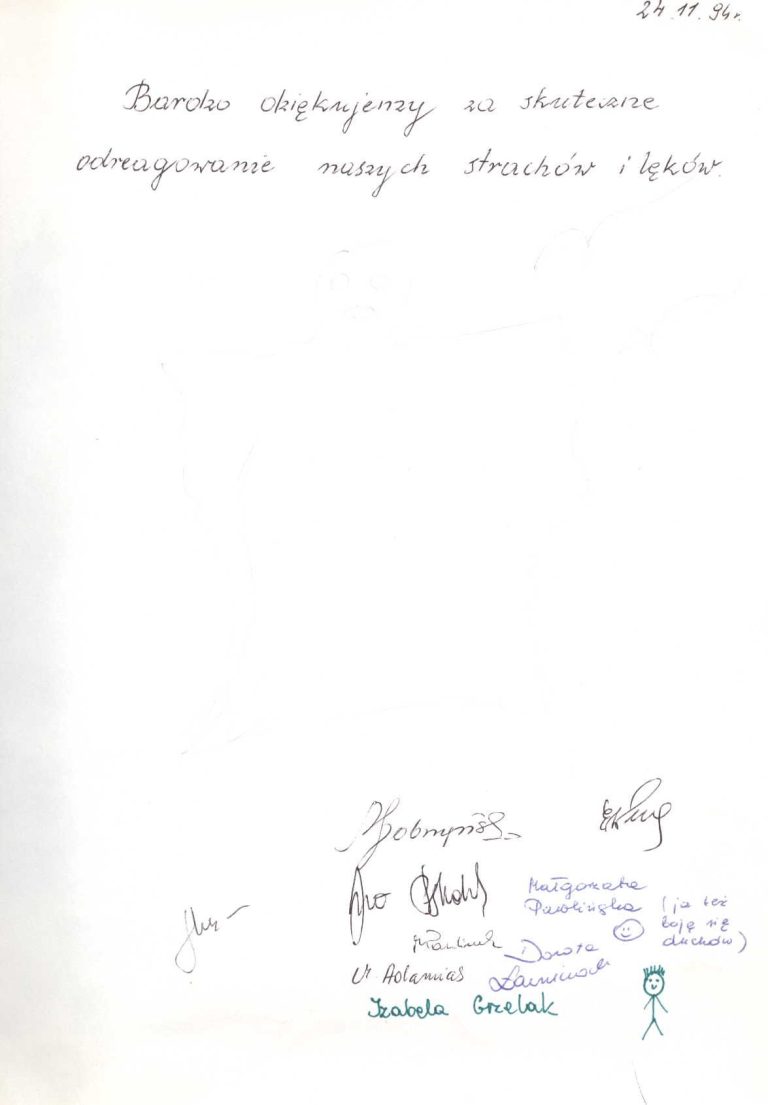 24.11.94r.
Bardzo dziękujemy za skuteczne
odreagowanie naszych strachów i lęków.
Małgorzata
Pawlińska (ja też
boję się
duchów)
Dorota
Adamias
Izabela Grzelak